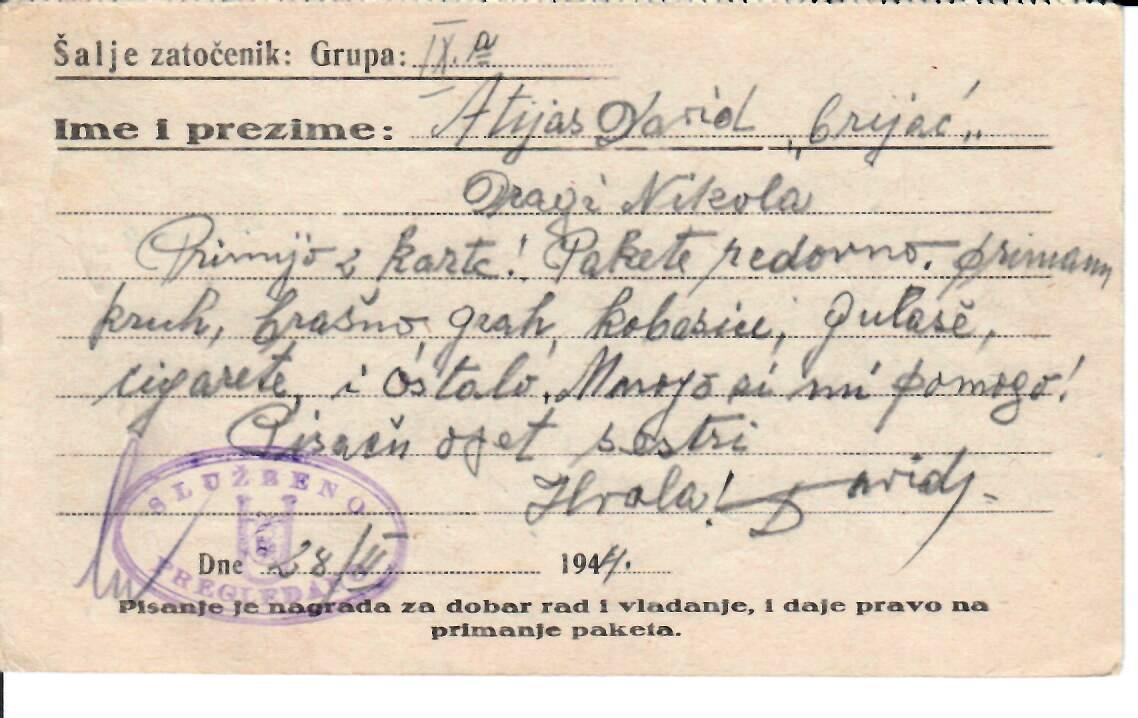 Šalje zatočenik: Grupa: IX. a
Ime i prezime: Atijas David „brijač„
Dragi Nikola
Primijo 2 karte! Pakete redovno. primam
kruh, brašno, grah, kobasice, gulaše,
cigarete, i ostalo. Mnogo si mi pomogo!
Pisaću opet sestri
Hvala! David
SLUŽBENO
PREGLEDANO
Dne 28/II 1944.
Pisanje je nagrada za dobar rad i vladanje, i daje pravo na
primanje paketa.